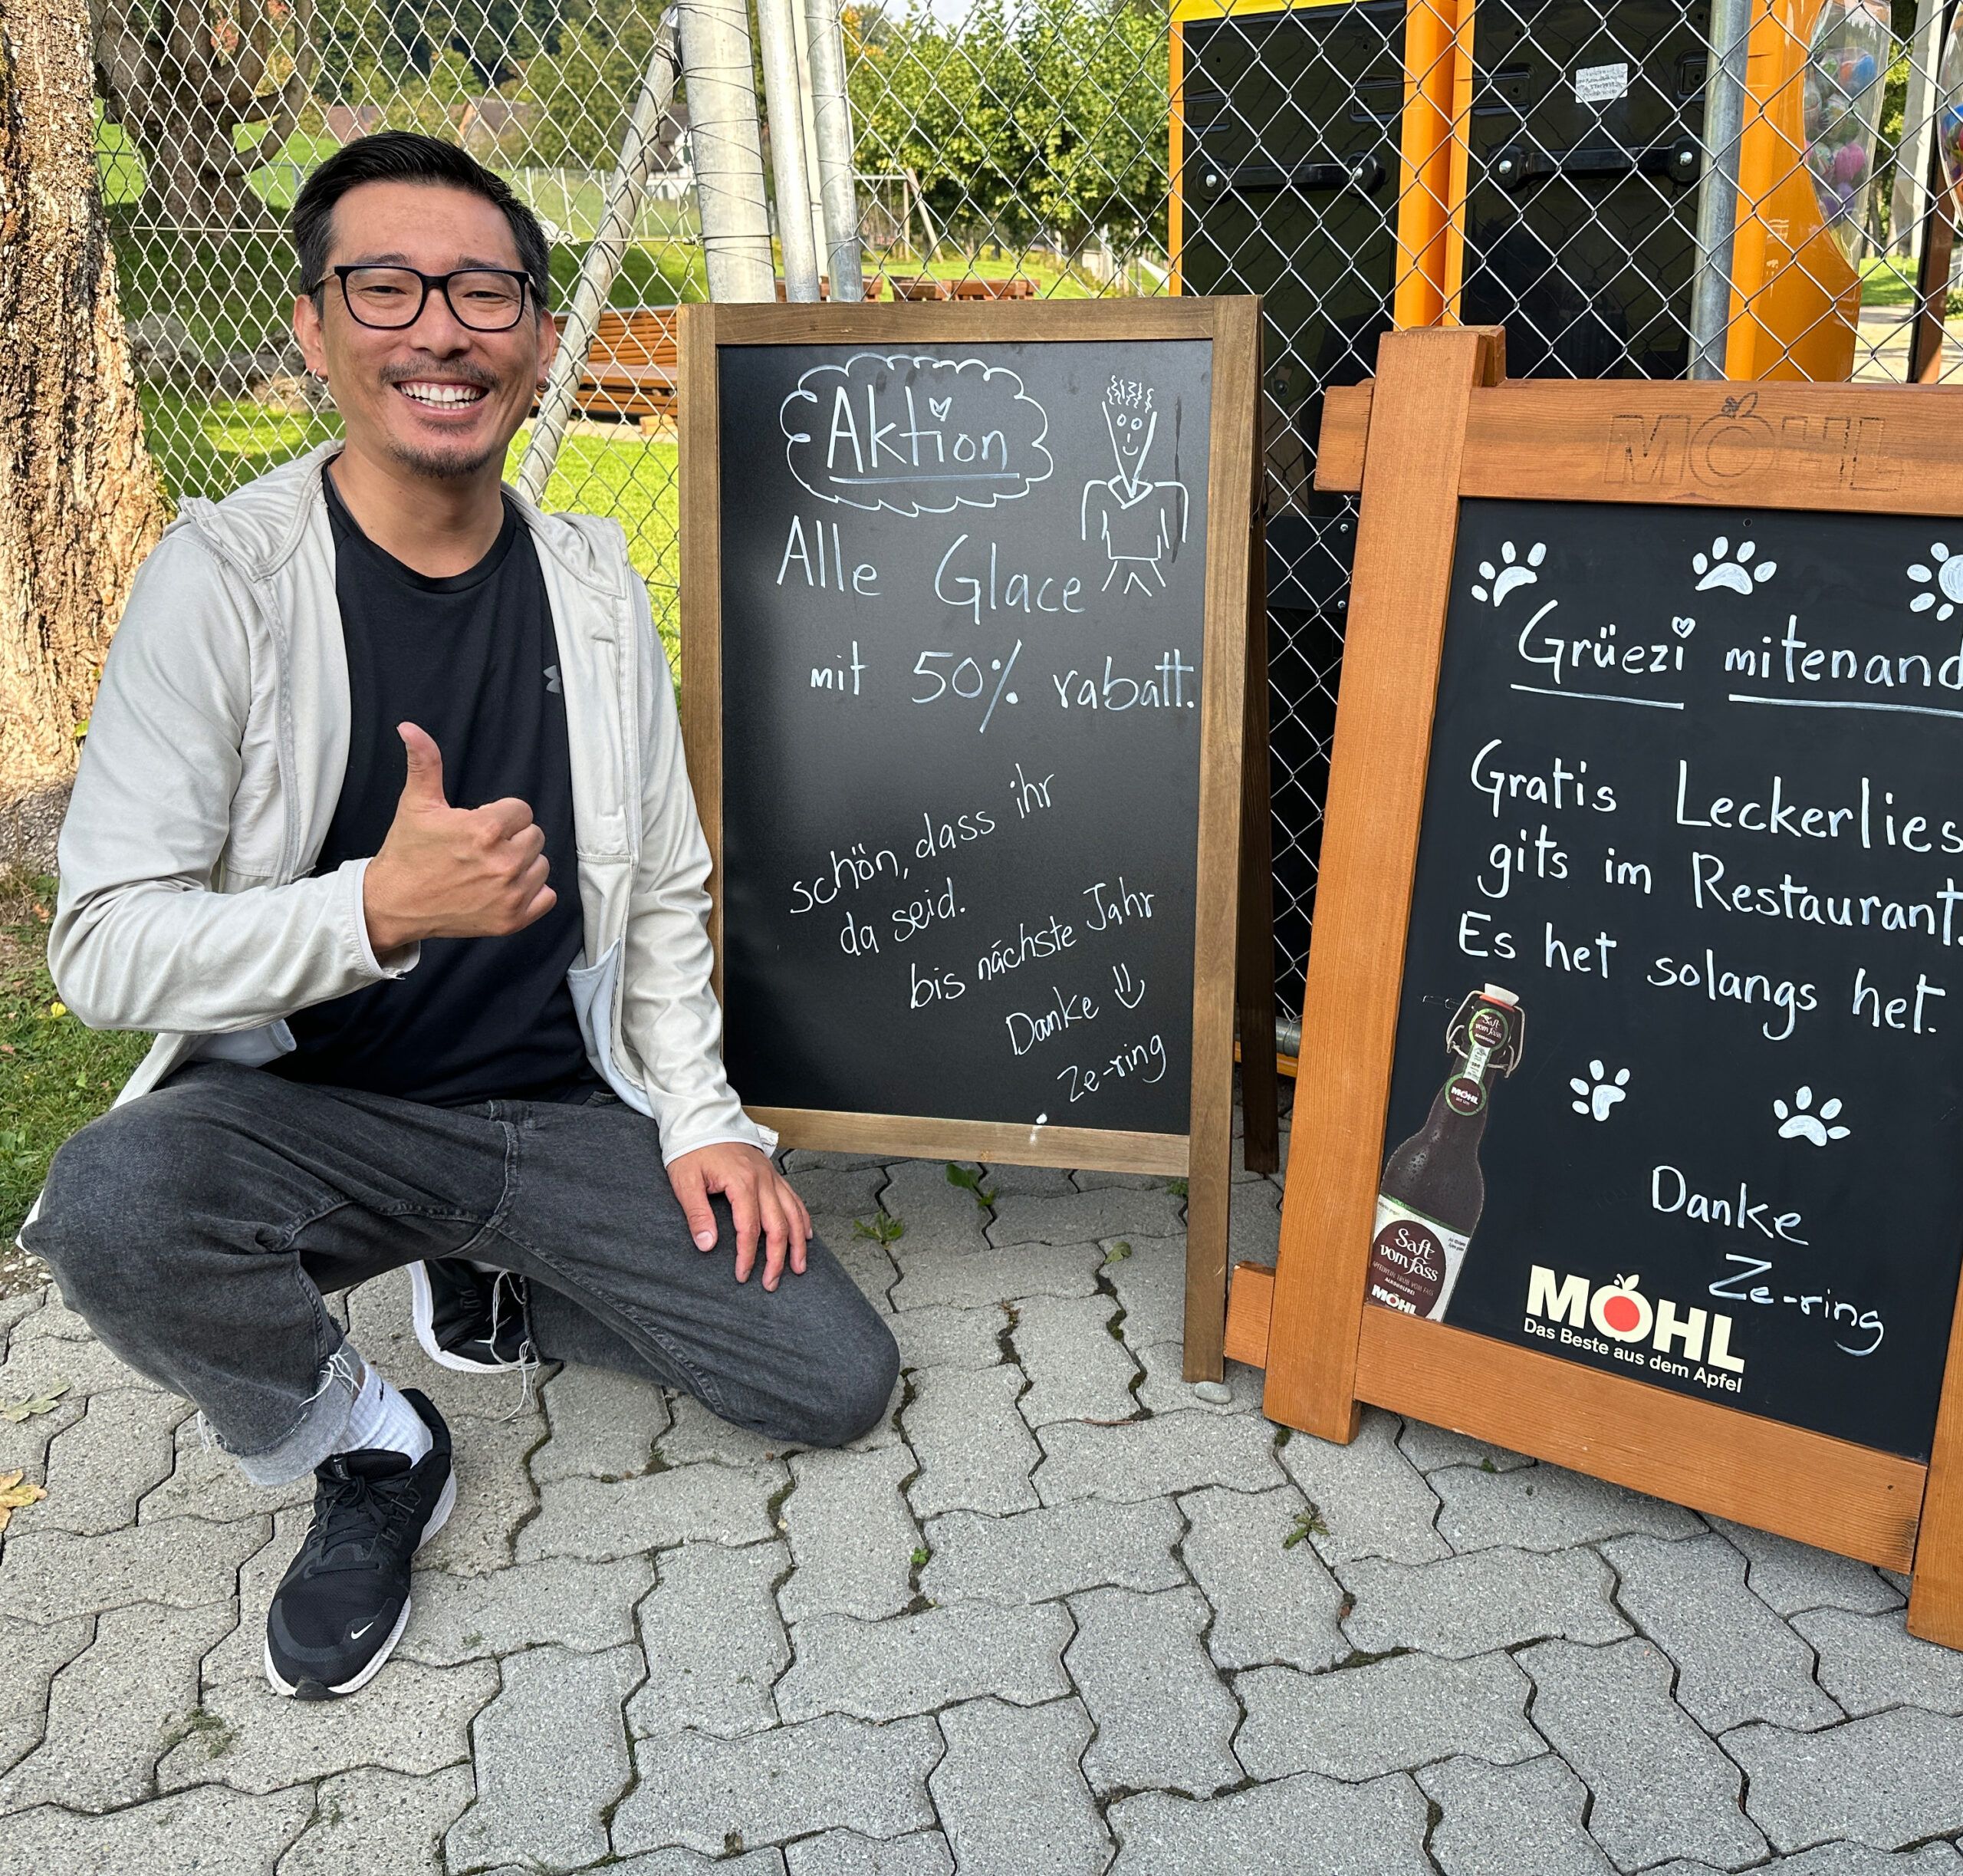 Aktion
Alle Glace
mit 50% rabatt.
schön, dass ihr
da seid.
bis nächste Jahr
Danke
Ze-ring
MÖHL
Grüezi mitenand
Gratis Leckerlies
gits im Restaurant.
Es het solangs het.
Danke
Ze-ring
Saft
vom fass
MÖHL
Saft
vom fass
MÖHL
MÖHL
Das Beste aus dem Apfel